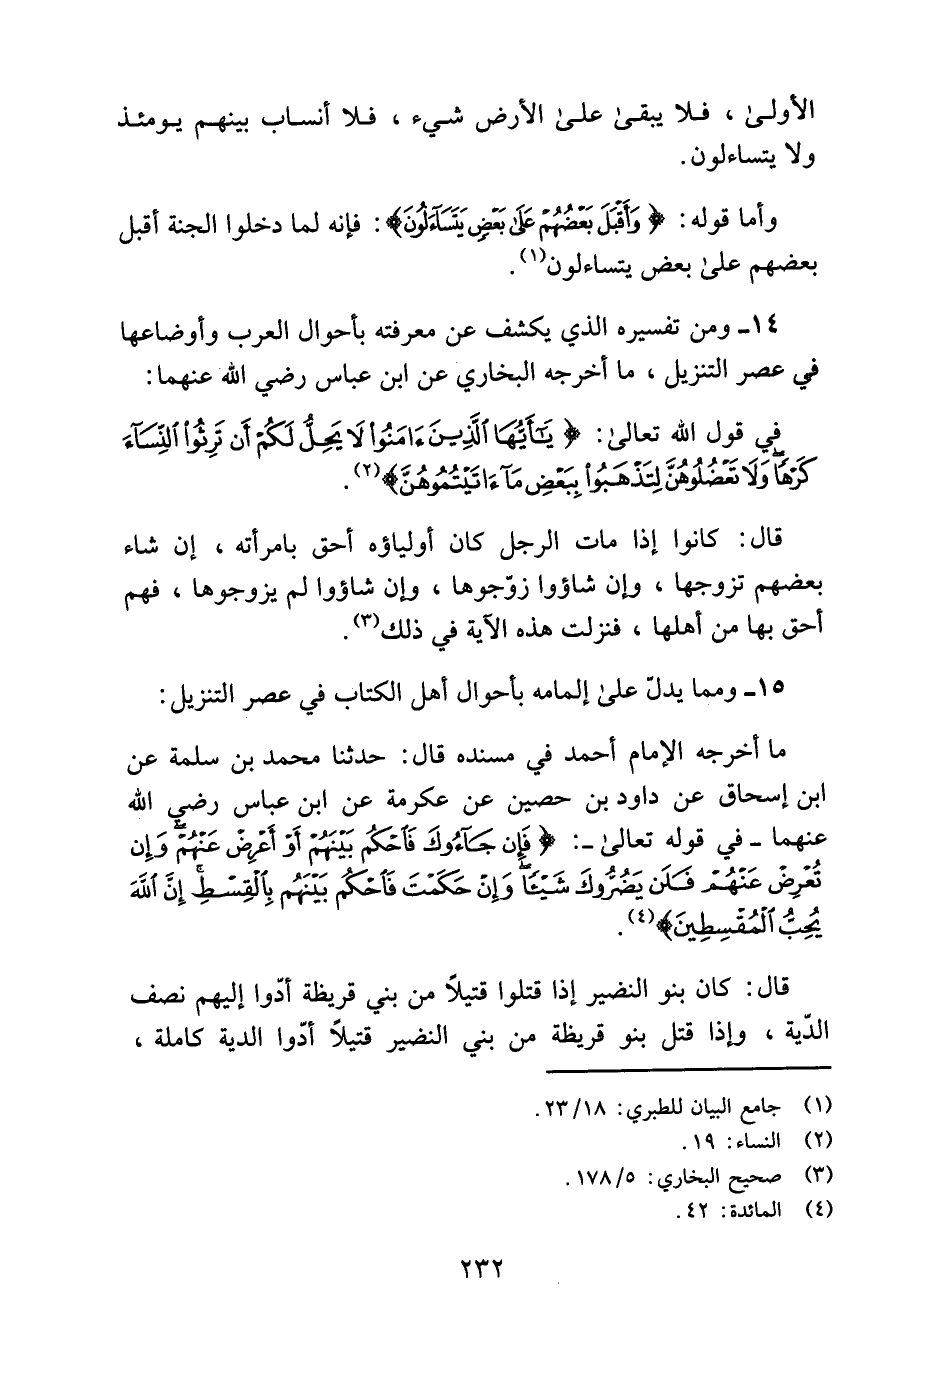 الأولىٰ ، فـلا يبقىٰ علـىٰ الأرض شـيء ، فـلا أنسـاب بينهـم يـومئـذ
ولا يتساءلون .
وأما قوله : ﴿ وَأَقْبَلَ بَعْضُهُمْ عَلَىٰ بَعْضٍ يَتَسَآءَلُونَ ﴾ : فإنه لما دخلوا الجنة أقبل
بعضهم علىٰ بعض يتساءلون(١) .
١٤ـ ومن تفسيره الذي يكشف عن معرفته بأحوال العرب وأوضاعها
في عصر التنزيل ، ما أخرجه البخاري عن ابن عباس رضي الله عنهما :
في قول الله تعالىٰ : ﴿ يَٰٓأَيُّهَا ٱلَّذِينَ ءَامَنُوا۟ لَا يَحِلُّ لَكُمْ أَن تَرِثُوا۟ ٱلنِّسَآءَ
كَرْهًا ۖ وَلَا تَعْضُلُوهُنَّ لِتَذْهَبُوا۟ بِبَعْضِ مَآ ءَاتَيْتُمُوهُنَّ ﴾(٢) .
قال : كانوا إذا مات الرجل كان أولياؤه أحق بامرأته ، إن شاء
بعضهم تزوجها ، وإن شاؤوا زوّجوها ، وإن شاؤوا لم يزوجوها ، فهم
أحق بها من أهلها ، فنزلت هذه الآية في ذلك(٣) .
١٥ـ ومما يدلّ علىٰ إلمامه بأحوال أهل الكتاب في عصر التنزيل :
ما أخرجه الإمام أحمد في مسنده قال : حدثنا محمد بن سلمة عن
ابن إسحاق عن داود بن حصين عن عكرمة عن ابن عباس رضي الله
عنهما ـ في قوله تعالىٰ ـ : ﴿ فَإِن جَآءُوكَ فَٱحْكُم بَيْنَهُمْ أَوْ أَعْرِضْ عَنْهُمْ ۖ وَإِن
تُعْرِضْ عَنْهُمْ فَلَن يَضُرُّوكَ شَيْـًٔا ۖ وَإِنْ حَكَمْتَ فَٱحْكُم بَيْنَهُم بِٱلْقِسْطِ ۚ إِنَّ ٱللَّهَ
يُحِبُّ ٱلْمُقْسِطِينَ ﴾(٤) .
قال : كان بنو النضير إذا قتلوا قتيلاً من بني قريظة أدّوا إليهم نصف
الدّية ، وإذا قتل بنو قريظة من بني النضير قتيلاً أدّوا الدية كاملة ،
(١) جامع البيان للطبري : ٢٣/١٨ .
(٢) النساء : ١٩ .
(٣) صحيح البخاري : ١٧٨/٥ .
(٤) المائدة : ٤٢ .
٢٣٢